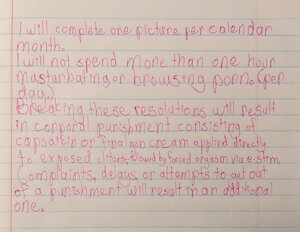 I will complete one picture per calendar
month.
I will not spend more than one hour
masturbating or browsing porn. (per
day.)
Breaking these resolutions will result
in corporal punishment consisting of
capsaicin or finalgon cream applied directly
to exposed clitoris, followed by forced orgasm via estim.
Complaints, delays, or attempts to get out
of a punishment will result in an additional
one.